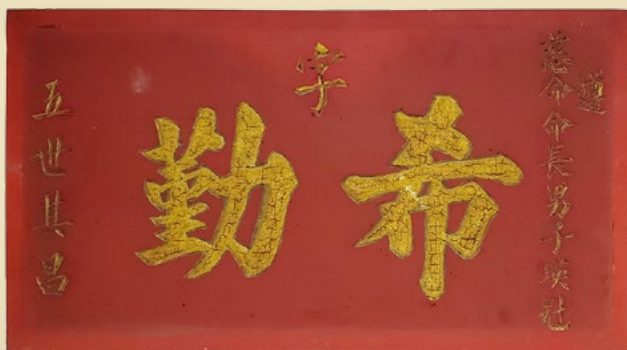 遵
慈命命長男子瑛
字
希勤
五世其昌